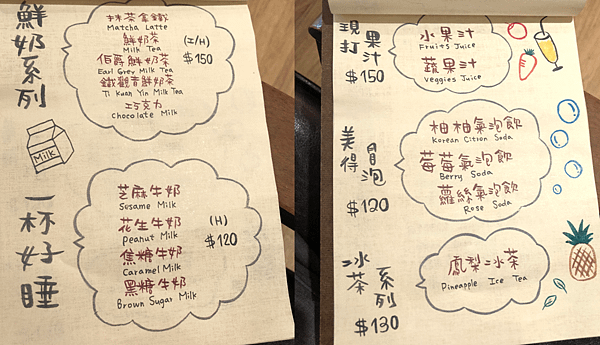 鮮奶系列
抹茶拿鐵
Matcha Latte
鮮奶茶
Milk Tea
伯爵鮮奶茶
Earl Grey Milk Tea
鐵觀音鮮奶茶
Ti Kuan Yin Milk Tea
巧克力
Chocolate Milk
(I/H)
$150
Milk
一杯好睡
芝麻牛奶
Susame Milk
花生牛奶
Peanut Milk
焦糖牛奶
Caramel Milk
黑糖牛奶
Brown Sugar Milk
(H)
$120
現打果汁
$150
水果汁
Fruits Juice
蔬果汁
Veggies Juice
美得冒泡
$120
柚柚氣泡飲
Korean Citron Soda
莓莓氣泡飲
Berry Soda
蘿絲氣泡飲
Rose Soda
冰茶系列
$130
鳳梨冰茶
Pineapple Ice Tea